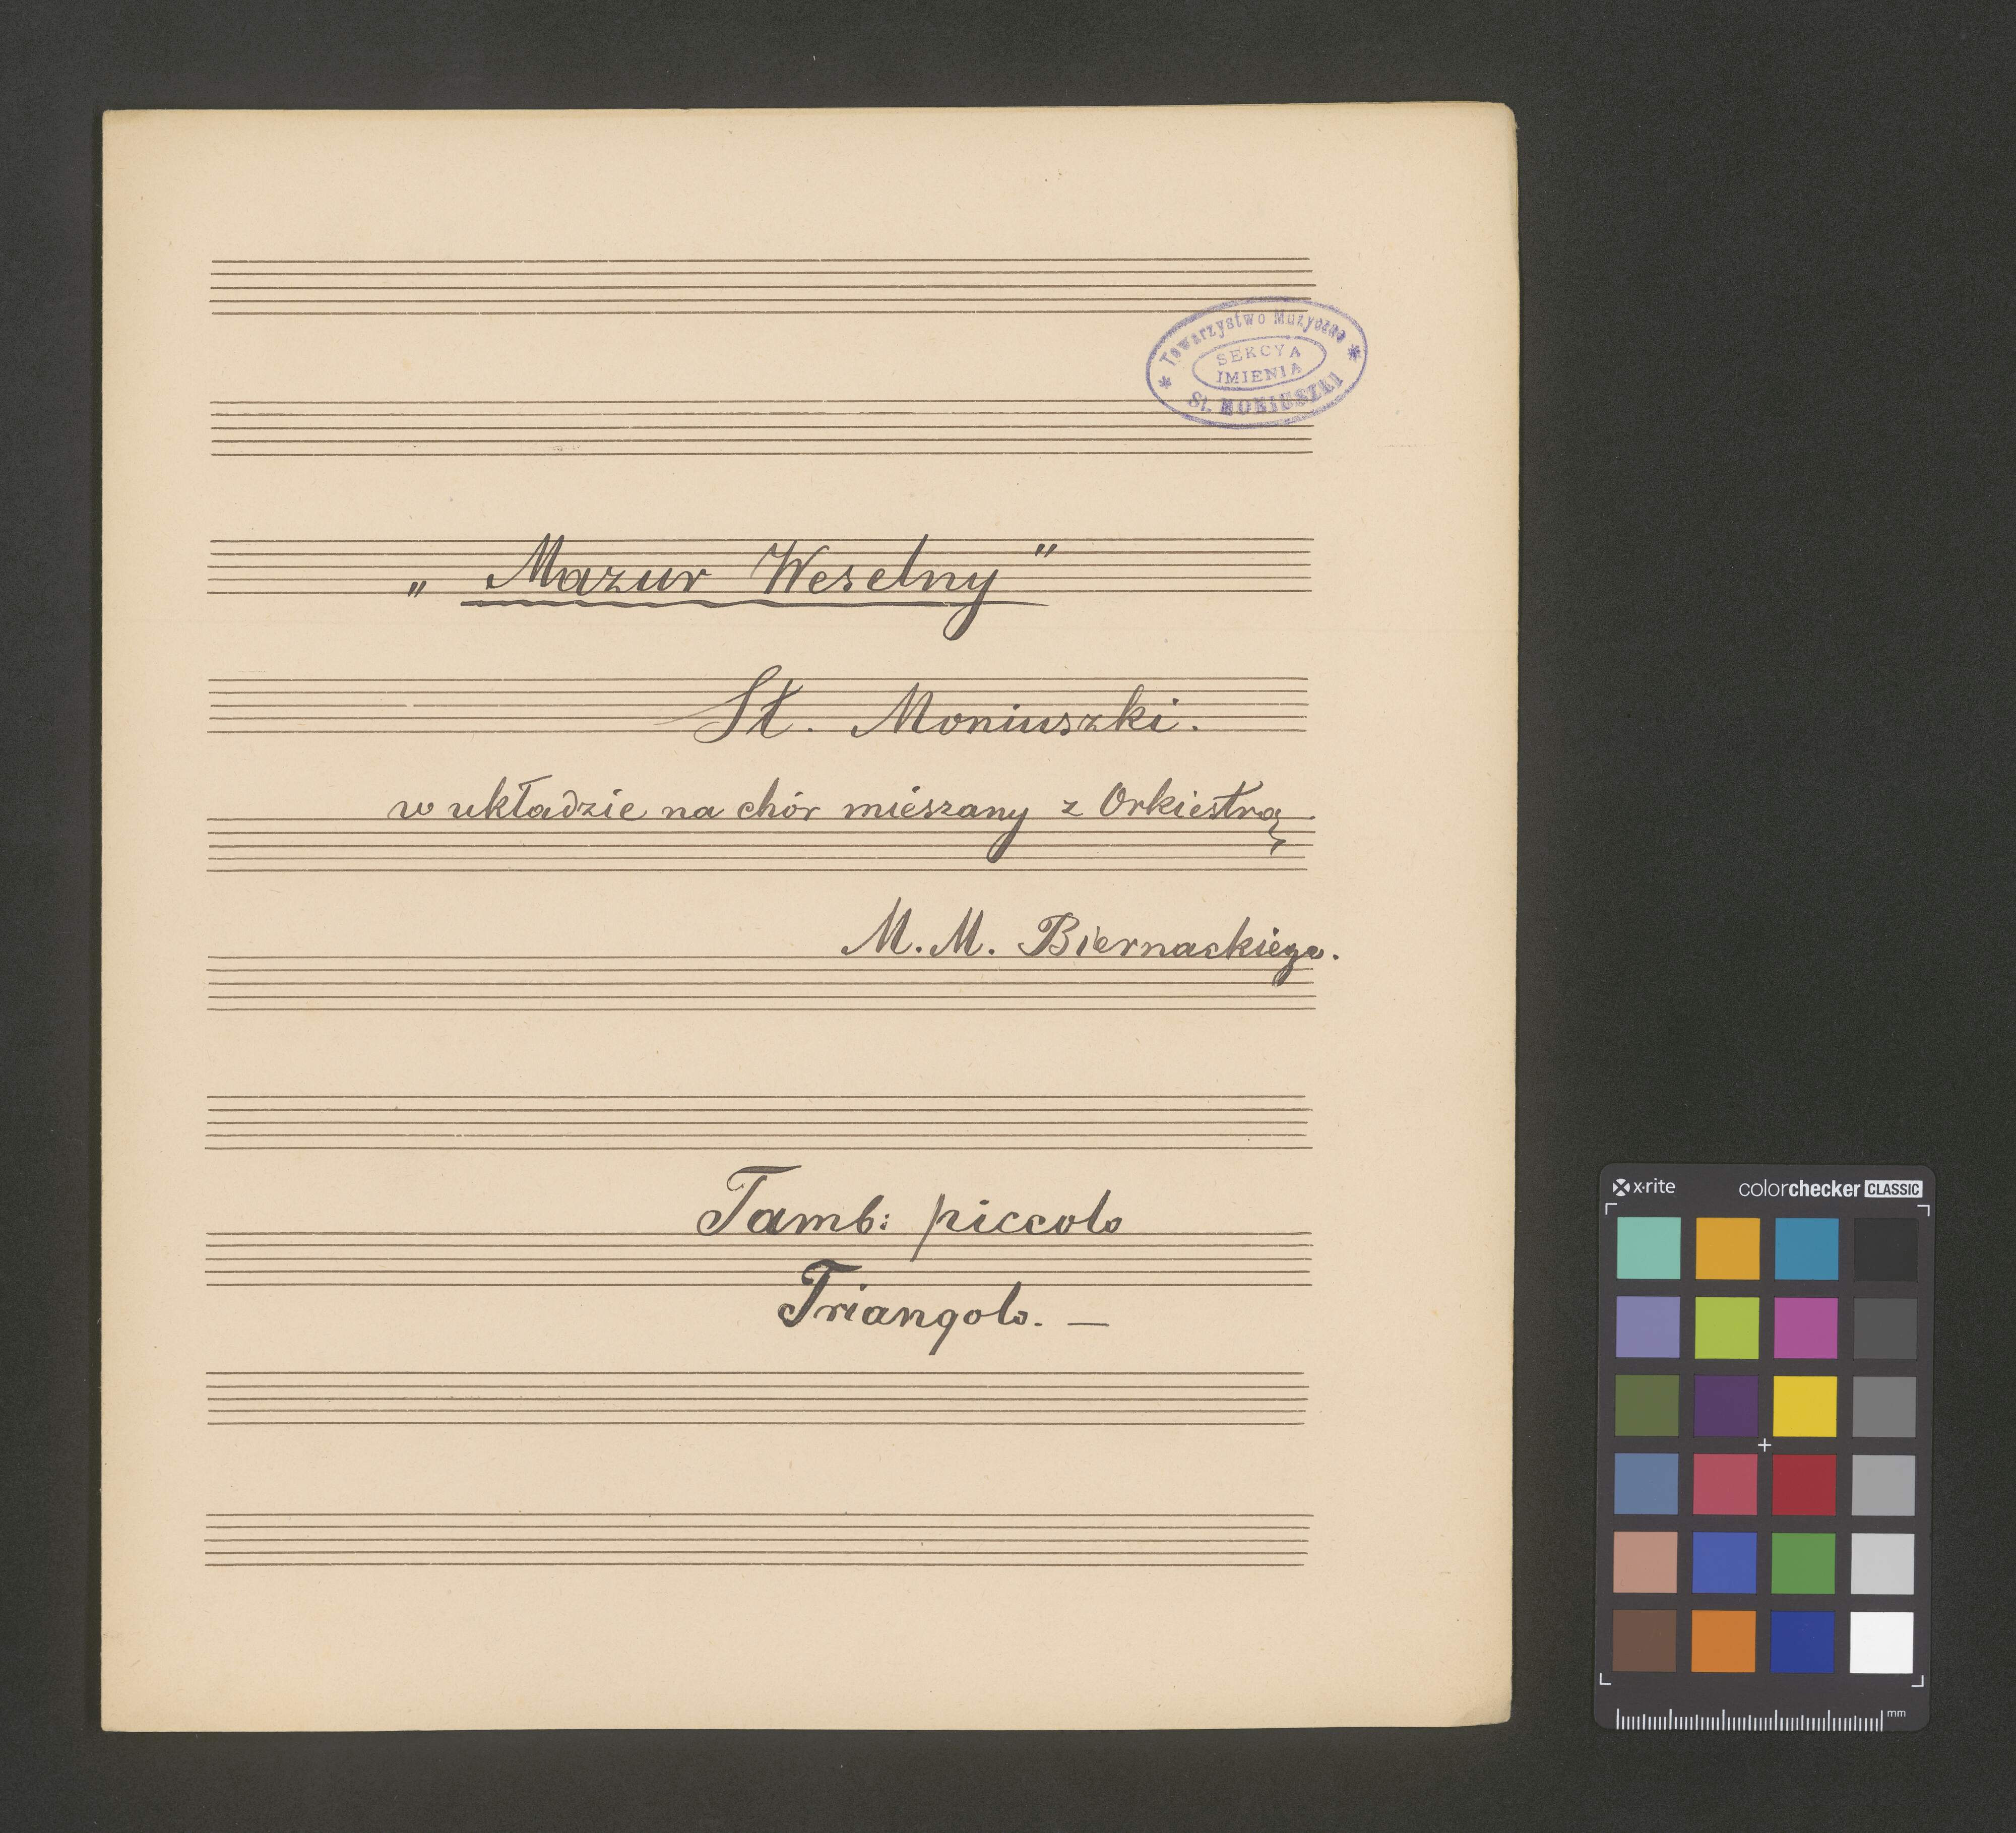 Towarzystwo Muzyczne
SEKCYA
IMIENIA
St. MONIUSZKI
„Mazur Weselny"
St. Moniuszki.
w układzie na chór miészany z Orkiestrą
M. M. Biernackiego.
Tamb: piccolo
Triangolo. —
x·rite colorchecker CLASSIC
mm